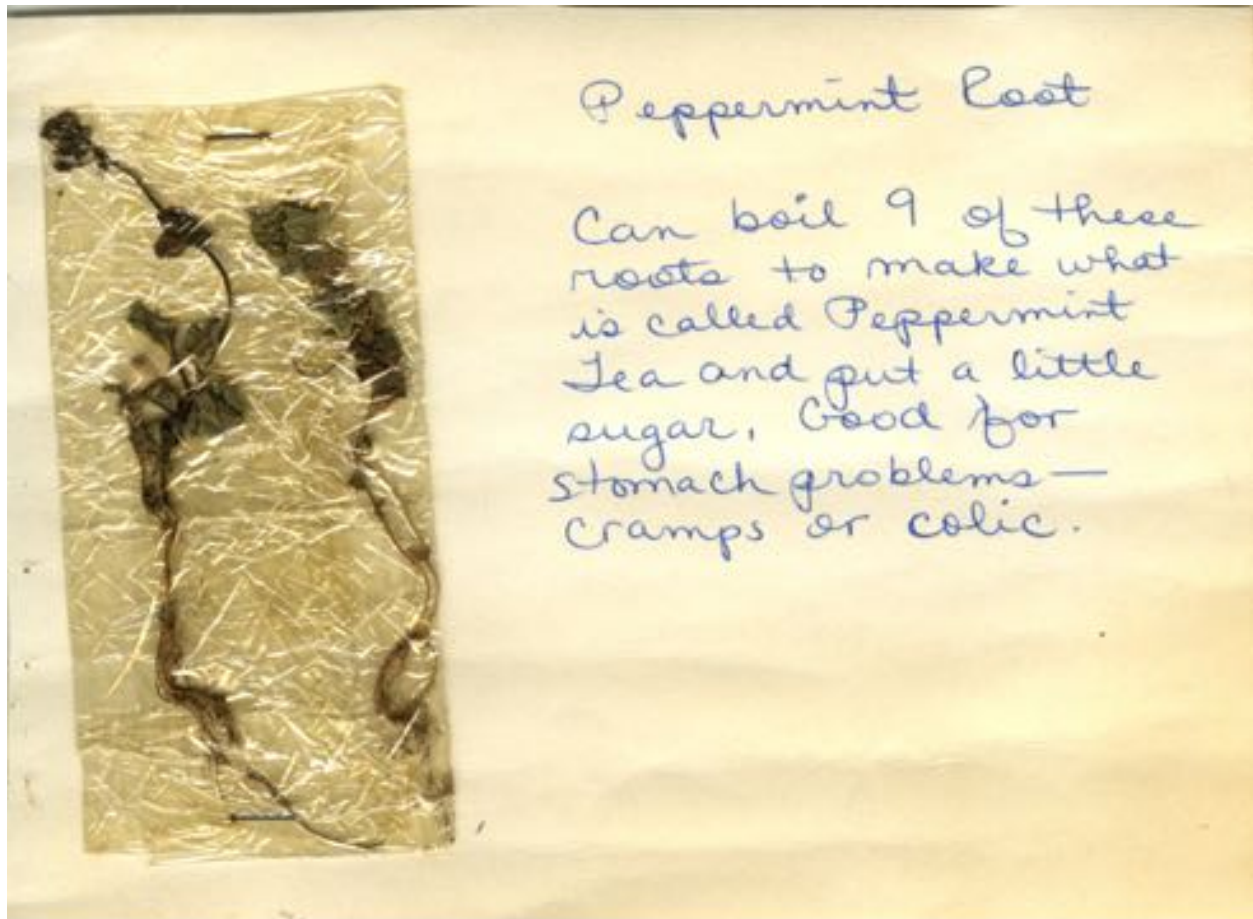 Peppermint Root
Can boil 9 of these
roots to make what
is called Peppermint
Tea and put a little
sugar. Good for
stomach problems—
cramps or colic.